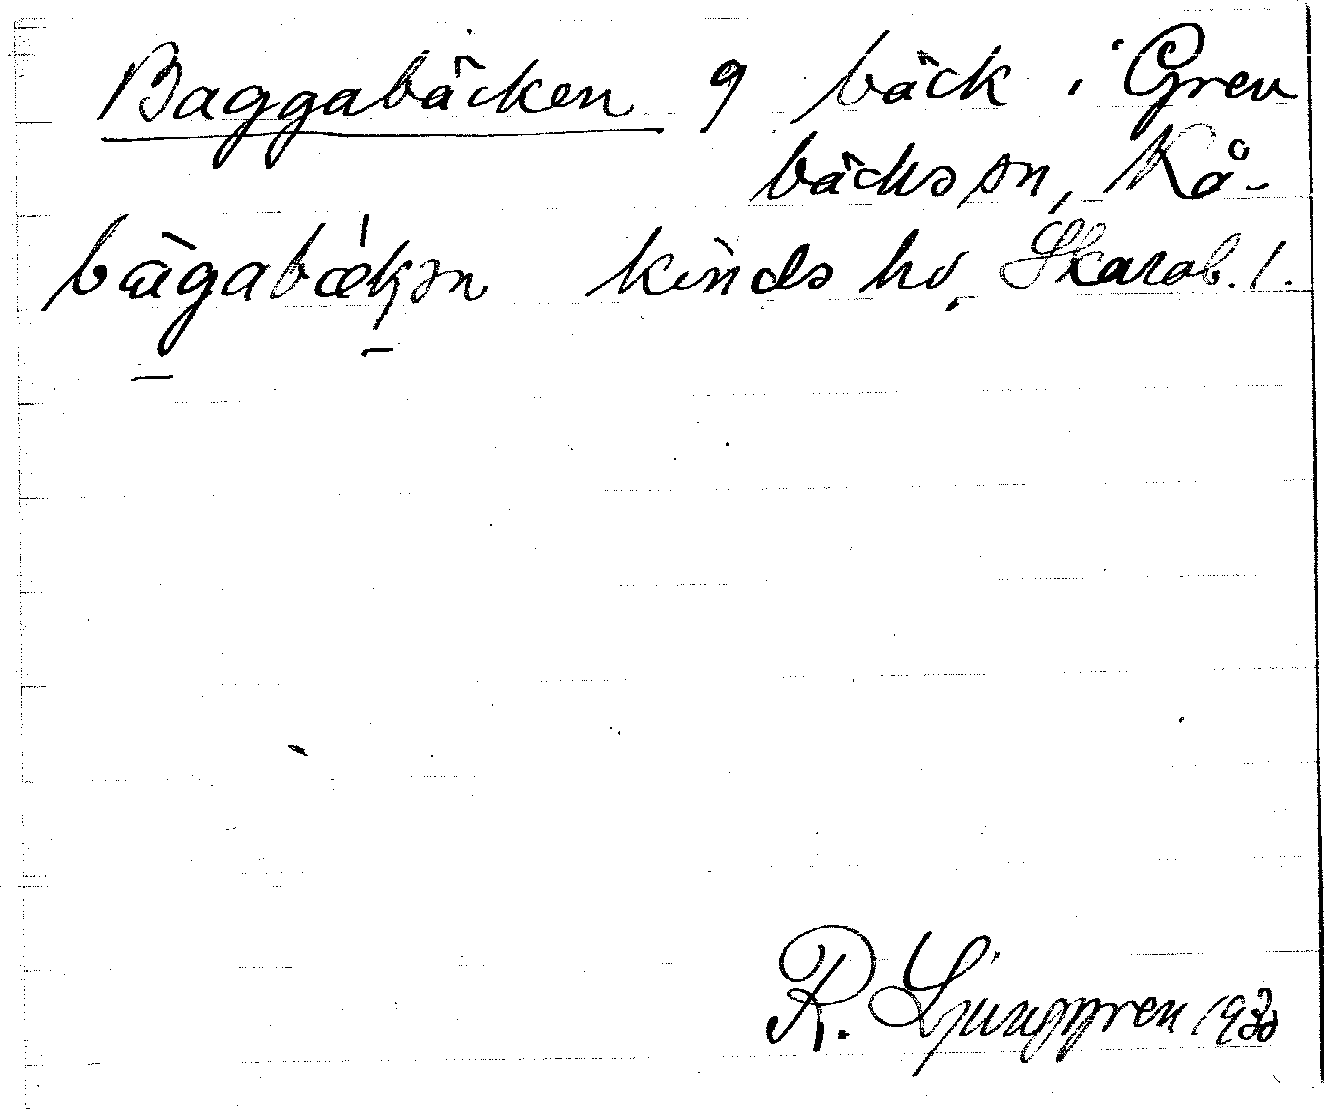 Baggabäcken 9 bäck i Grev
bäcks sn, Kå-
bàgabækən kinds hd, Skarab. l.
R. Ljunggren 1930